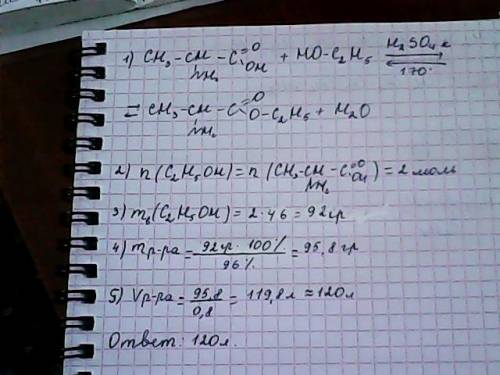 1) CH₃-CH-C=O + HO-C₂H₅ H₂SO₄ к
NH₂ OH 170°
⇄ CH₃-CH-C=O + H₂O
NH₂ O-C₂H₅
2) n(C₂H₅OH) = n(CH₃-CH-C=O OH) = 2 моль
NH₂
3) mв(C₂H₅OH) = 2·46 = 92гр
4) mр-ра = 92гр · 100% / 96% = 95,8 гр
5) Vр-ра = 95,8 / 0,8 = 119,8 л ≈ 120 л
Ответ: 120 л.